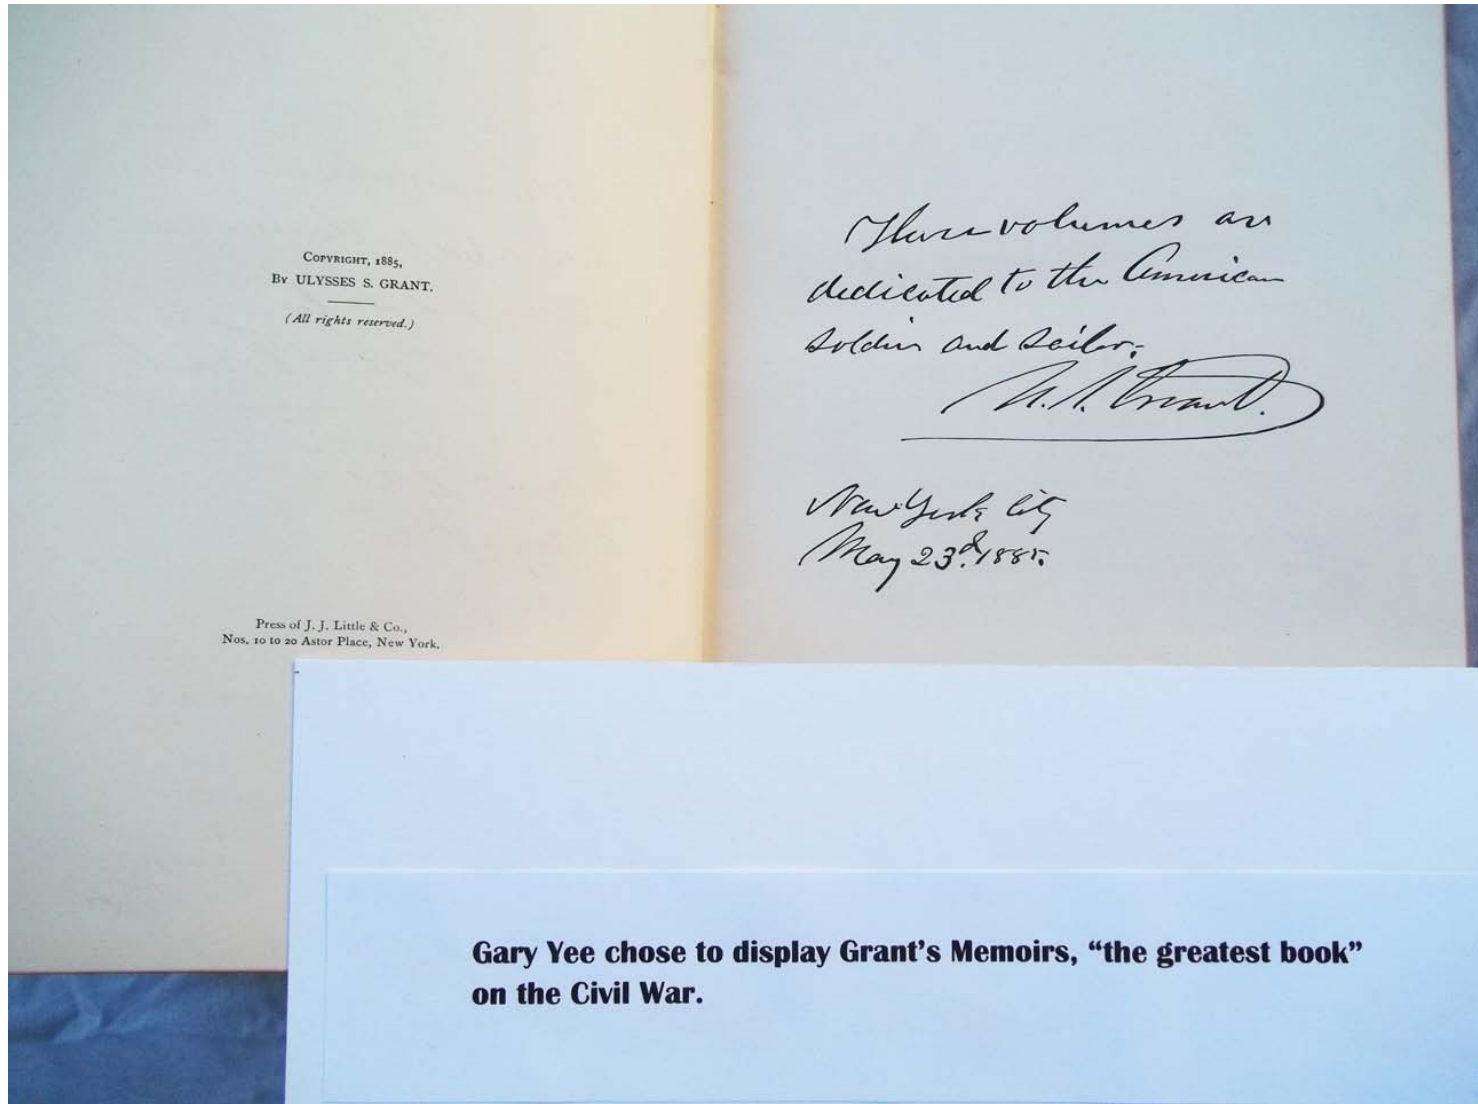 COPYRIGHT, 1885,
BY ULYSSES S. GRANT.
(All rights reserved.)
Press of J. J. Little & Co.,
Nos. 10 to 20 Astor Place, New York.
These volumes are
dedicated to the American
soldier and sailor.
U. S. Grant.
New York City
May 23d. 1885.
Gary Yee chose to display Grant’s Memoirs, “the greatest book”
on the Civil War.